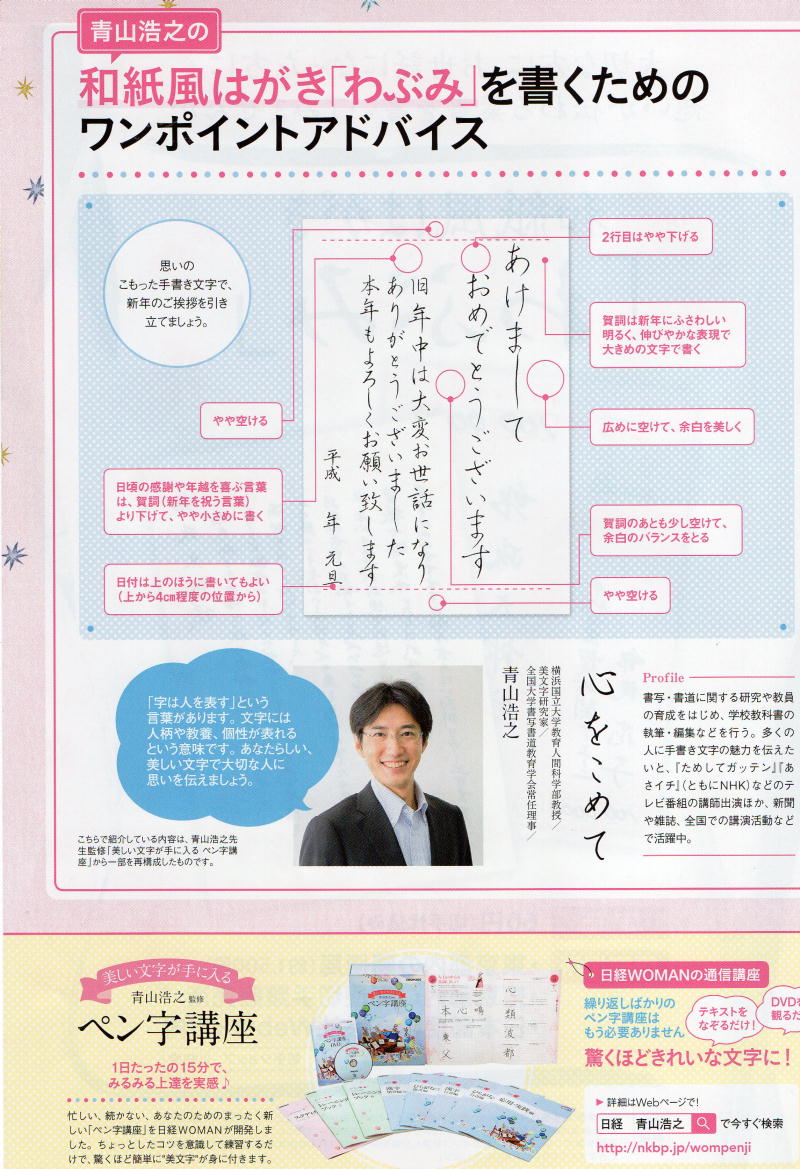 青山浩之の
和紙風はがき「わぶみ」を書くための
ワンポイントアドバイス
思いの
こもった手書き文字で、
新年のご挨拶を引き
立てましょう。
やや空ける
日頃の感謝や年越を喜ぶ言葉
は、賀詞（新年を祝う言葉）
より下げて、やや小さめに書く
日付は上のほうに書いてもよい
（上から4cm程度の位置から）
あけまして
おめでとうございます
旧年中は大変お世話になり
ありがとうございました
本年もよろしくお願い致します
平成　年　元旦
2行目はやや下げる
賀詞は新年にふさわしい
明るく、伸びやかな表現で
大きめの文字で書く
広めに空けて、余白を美しく
賀詞のあとも少し空けて、
余白のバランスをとる
やや空ける
「字は人を表す」という
言葉があります。文字には
人柄や教養、個性が表れる
という意味です。あなたらしい、
美しい文字で大切な人に
思いを伝えましょう。
こちらで紹介している内容は、青山浩之先
生監修「美しい文字が手に入る ペン字講
座」から一部を再構成したものです。
横浜国立大学教育人間科学部教授／
美文字研究家／
全国大学書写書道教育学会常任理事／
青山浩之
心をこめて
Profile
書写・書道に関する研究や教員
の育成をはじめ、学校教科書の
執筆・編集などを行う。多くの
人に手書き文字の魅力を伝えた
いと、『ためしてガッテン』『あ
さイチ』（ともにNHK）などのテ
レビ番組の講師出演ほか、新聞
や雑誌、全国での講演活動など
で活躍中。
美しい文字が手に入る
青山浩之 監修
ペン字講座
1日たったの15分で、
みるみる上達を実感♪
忙しい、続かない、あなたのためのまったく新
しい「ペン字講座」を日経WOMANが開発しまし
た。ちょっとしたコツを意識して練習するだ
けで、驚くほど簡単に"美文字"が身に付きます。
ペン字講座
ペン字講座
本心鳴
東
父
心
類
波
都
日経WOMANの通信講座
繰り返しばかりの
ペン字講座は
もう必要ありません
テキストを
なぞるだけ！
DVDを
観るだ
驚くほどきれいな文字に！
▶ 詳細はWebページで！
日経　青山浩之 で今すぐ検索
http://nkbp.jp/wompenji